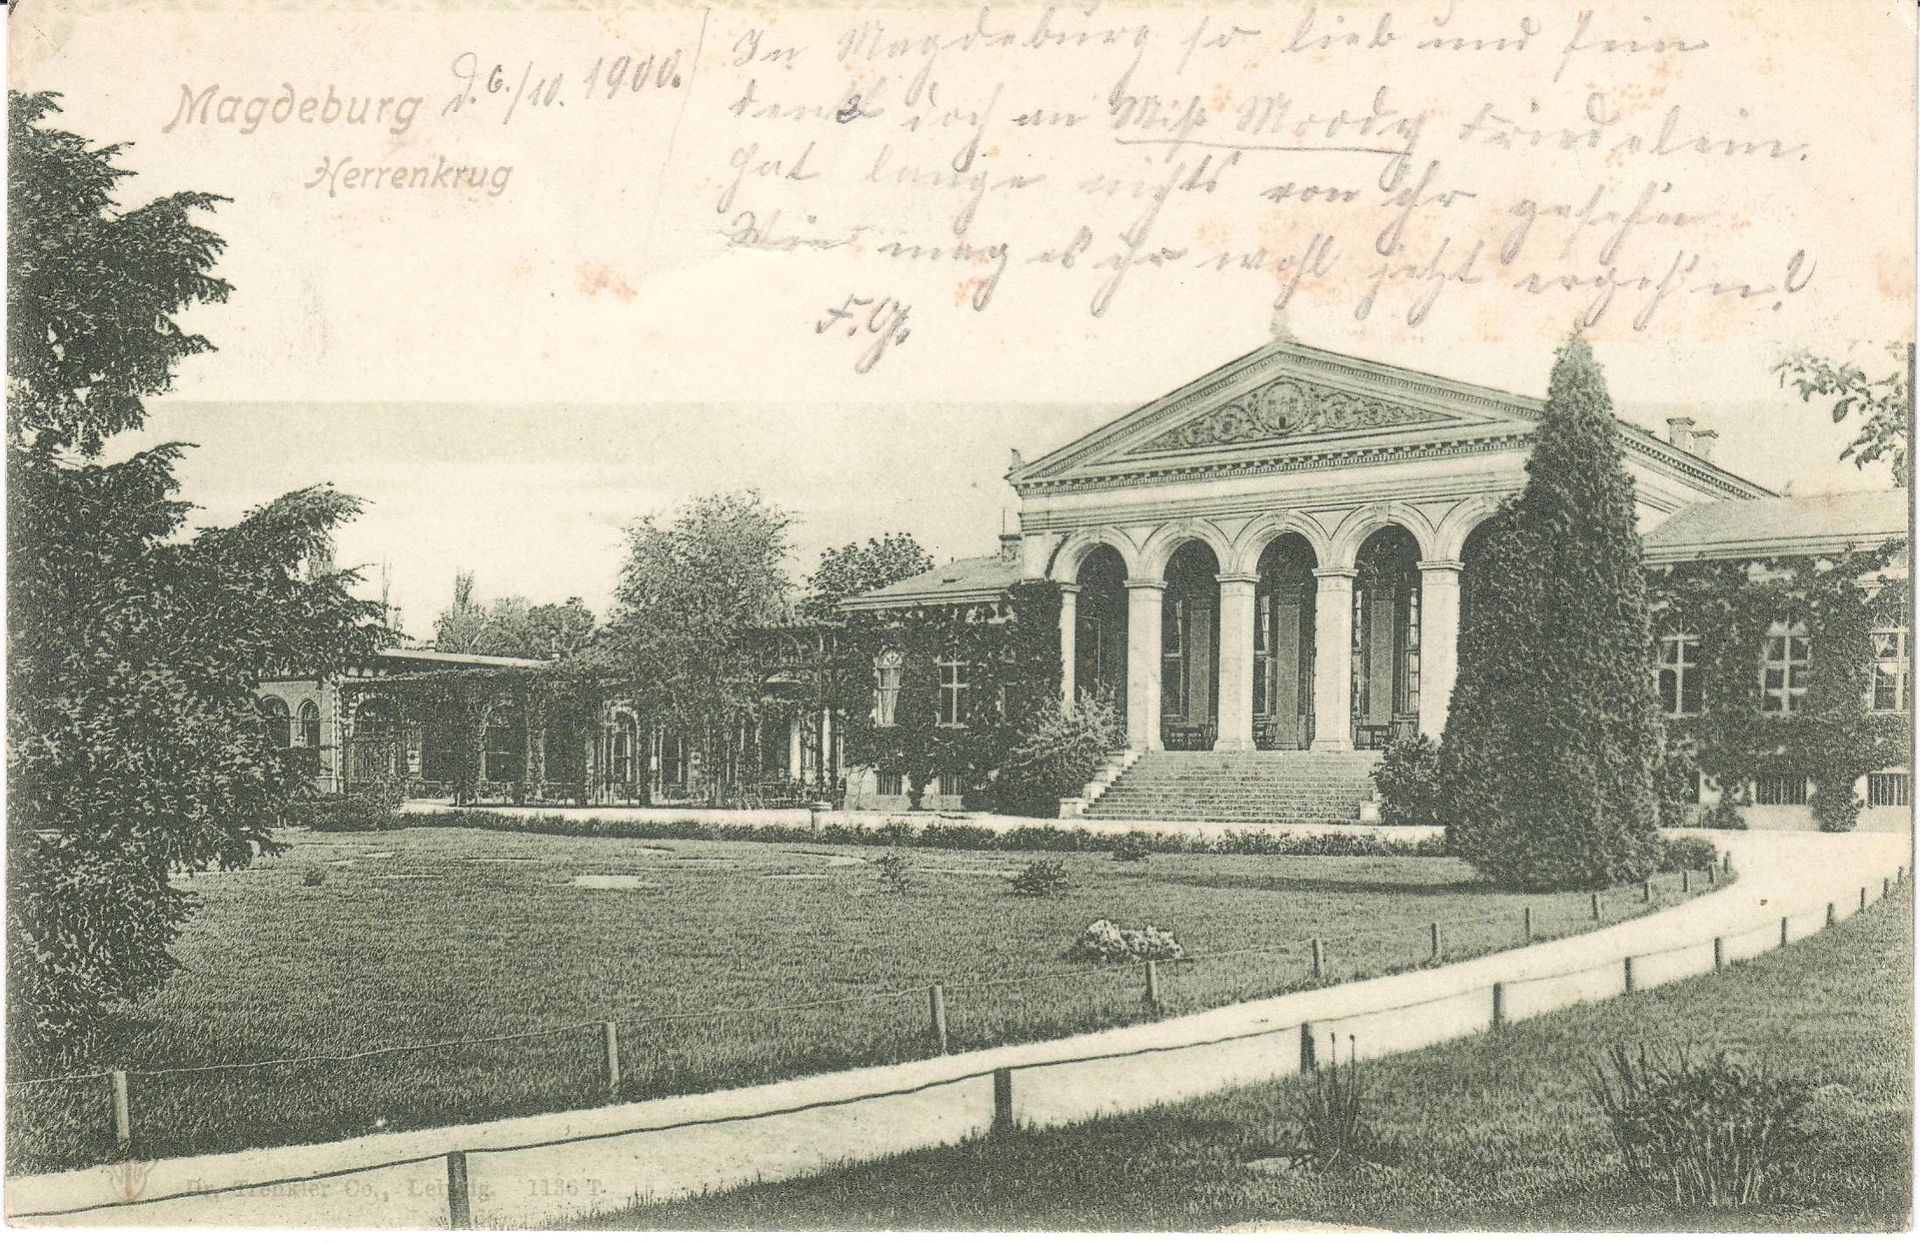 Magdeburg
Herrenkrug
d. 6./10. 1900.
In Magdeburg so lieb und fein
denkt doch an Miß Moody Friedelein.
Hat lange nichts von ihr gesehen
Wie mag es ihr wohl jetzt ergeh'n?
F. G.
Dr. Trenkler Co., Leipzig. 1136 T.